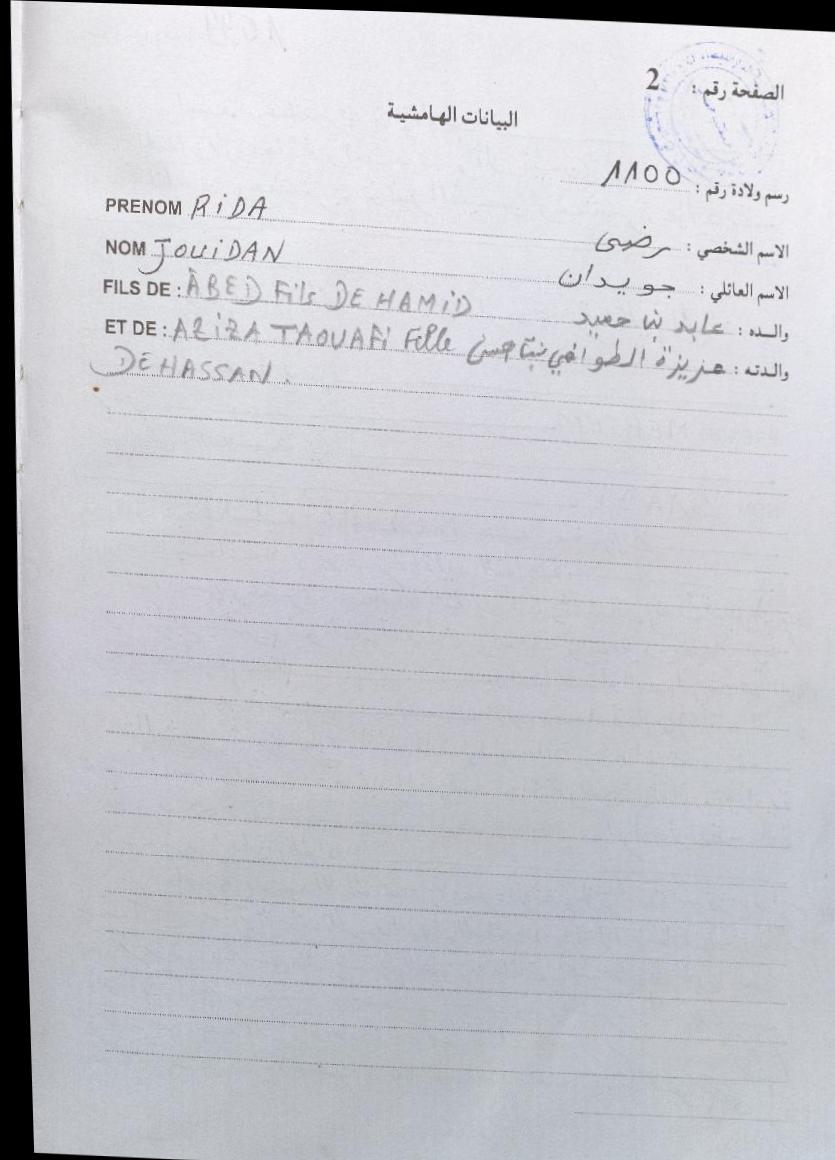 الصفحة رقم : 2
البيانات الهامشية
رسم ولادة رقم : 1100
PRENOM RiDA
الاسم الشخصي : رضى
NOM JOUiDAN
الاسم العائلي : جويدان
FILS DE : ÂBED Fils DE HAMiD
والده : عابد بنا حميد
ET DE : AZiZA TAOUAFi Fille
والدته : عزيزة الطوافي بنتا حسن
DE HASSAN.